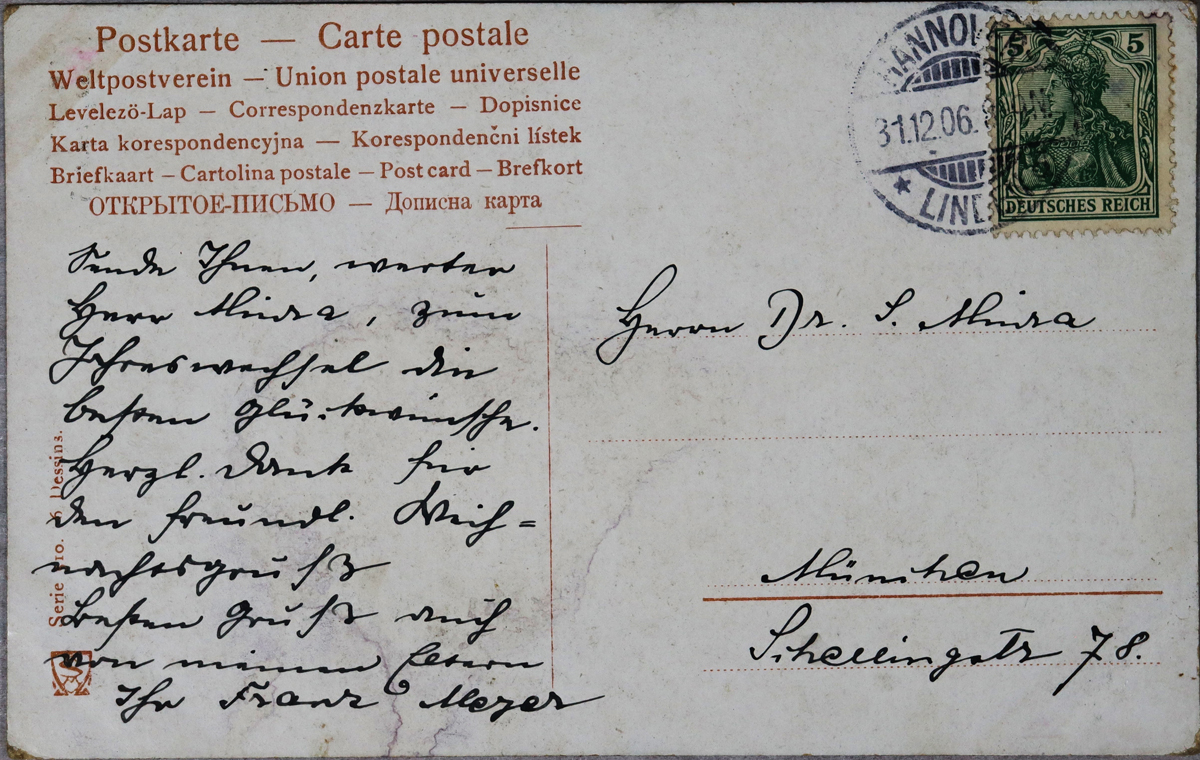 Postkarte — Carte postale
Weltpostverein — Union postale universelle
Levelezö-Lap — Correspondenzkarte — Dopisnice
Karta korespondencyjna — Korespondenčni lístek
Briefkaart — Cartolina postale — Post card — Brefkort
ОТКРЫТОЕ-ПИСЬМО — Дописна карта
HANNOV
31.12.06.
LIND
5 5
DEUTSCHES REICH
Sende Ihnen, werter
Herr Mura, zum
Jahreswechsel die
besten Glückwünsche.
Herzl. Dank für
den freundl. Weih=
nachtsgruß
Besten Gruß auch
von meinen Eltern
Ihr Franz Meyer
Herrn Dr. S. Mura
München
Schellingstr 78.
Serie No. 6 Dessins.